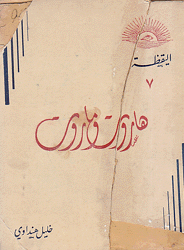 اليقظة
٧
هاروت وماروت
خليل هنداوي